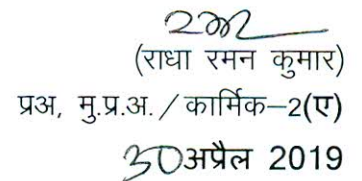 (राधा रमन कुमार)
प्रअ, मु.प्र.अ. / कार्मिक–2(ए)
30अप्रैल 2019